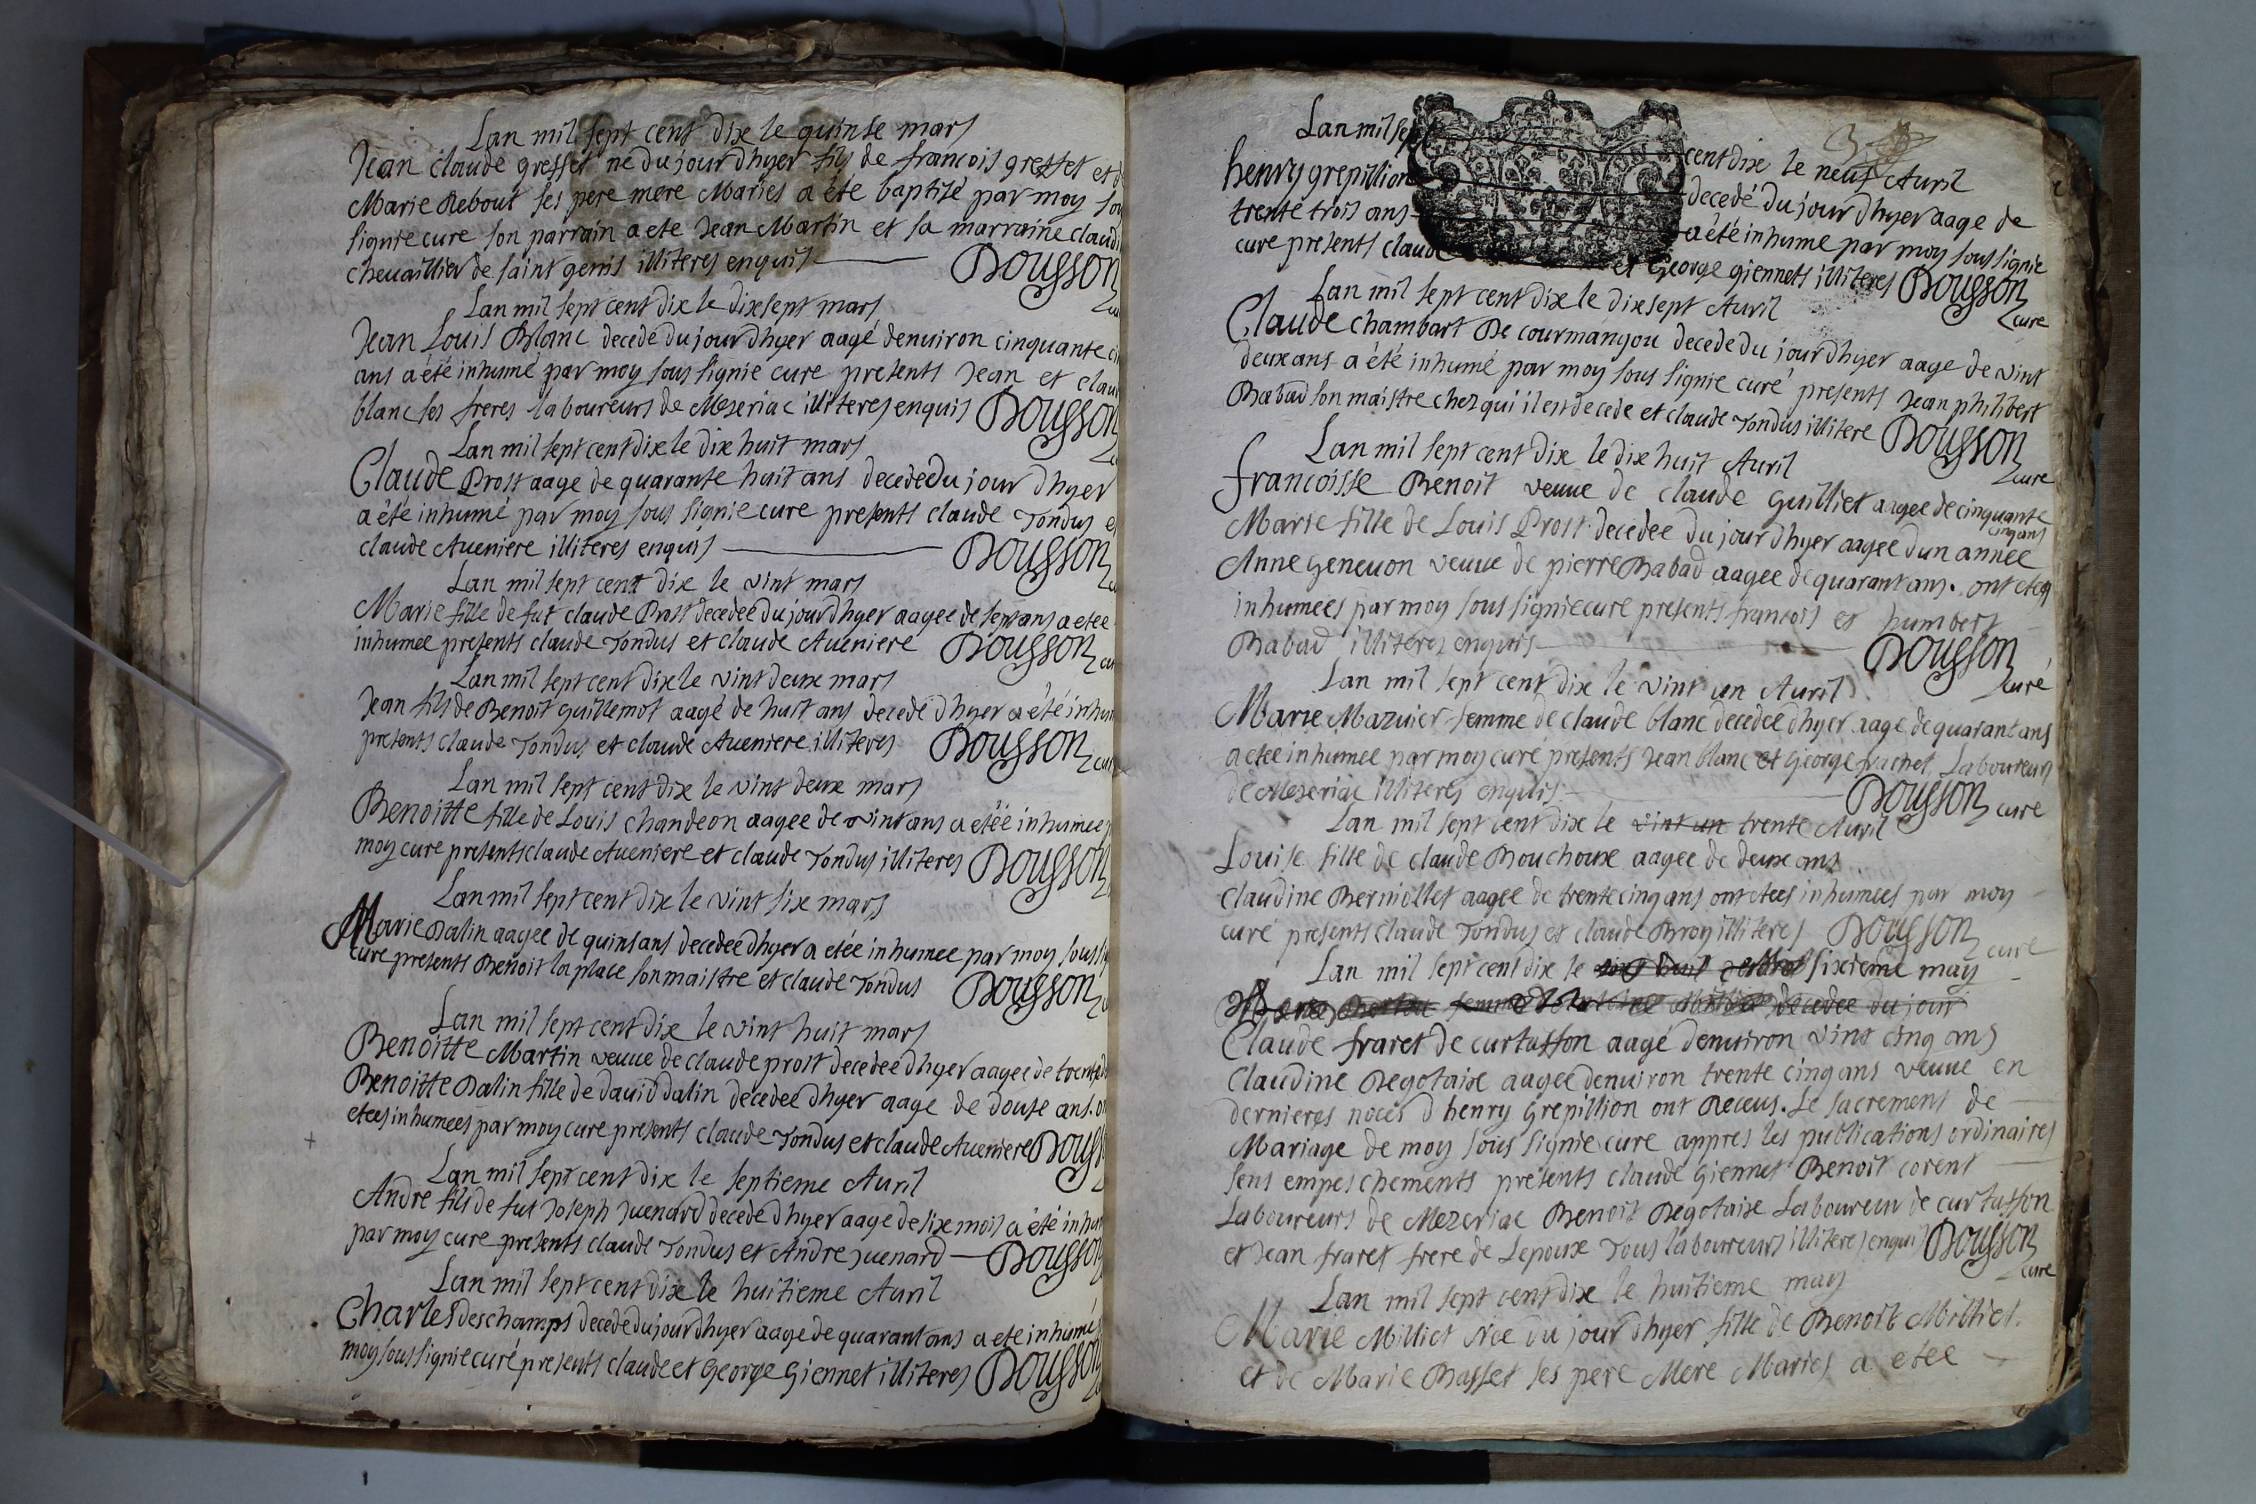 Lan mil sept cent dix le quinse mars
Jean claude gresset né du jour dhyer fils de francois gresset et d
Marie Rebout ses pere mere Maries a été baptisé par moy sou
signie cure son parrain a ete Jean Martin et sa marraine claudi
cheuaillier de saint genis illiteres enquis
Dousson
Lan mil sept cent dix le dixsept mars
Jean Louis Blanc decede du jour dhyer aagé denuiron cinquante cin
ans a été inhumé par moy sous signie cure presents Jean et claude
blanc ses freres laboureurs de Meseriac illiteres enquis Dousson
Lan mil sept cent dix le dix huit mars
Claude Prost aage de quarante huit ans decede du jour dhyer
a été inhumé par moy sous signie cure presents claude Tondus et
claude Aueniere illiteres enquis Dousson
Lan mil sept cent dix le vint mars
Marie fille de fut claude Prost decedee du jour dhyer aagee de sept ans a etee
inhumee presents claude Tondus et claude Aueniere Dousson cu
Lan mil sept cent dix le vint deux mars
Jean fils de Benoit guillemot aagé de huit ans decede dhyer a été inhum
presents claude Tondus et claude Aueniere illiteres Dousson cur
Lan mil sept cent dix le vint deux mars
Benoitte fille de Louis chandeon aagee de vint ans a etée inhumee p
moy cure presents claude Aueniere et claude Tondus illiteres Dousson
Lan mil sept cent dix le vint six mars
Marie Dalin aagee de quinsans decedee dhyer a etée inhumee par moy sous sig
cure presents Benoit la place son maistre et claude Tondus Dousson
Lan mil sept cent dix le vint huit mars
Benoitte Martin veuue de claude prost decedee dhyer aagee de trente
Benoitte Dalin fille de dauid dalin decedee dhyer aage de douse ans. on
etees inhumees par moy cure presents claude Tondus et claude Aueniere Douss
Lan mil sept cent dix le septieme Auril
Andre fils de fut Joseph Juenard decede dhyer aage de six mois a été inhum
par moy cure presents claude Tondus et Andre Juenard Dousson
Lan mil sept cent dix le huitieme Auril
Charles deschamps decede du jour dhyer aage de quarant ans a ete inhumé
moy sous signie curé presents claude et George Giennet illiteres Dousson
Lan mil sept cent dix le neuf Auril
henry grepillion decedé du jour dhyer aage de
trente trois ans a été inhume par moy sous signie
cure presents claude et George giennets illiteres Dousson
cure
Lan mil sept cent dix le dixsept Auril
Claude chambart De courmangou decede du jour dhyer aage de vint
deux ans a été inhumé par moy sous signie curé presents Jean philibert
Babad son maistre chez qui il est decede et claude Tondus illitere Dousson
cure
Lan mil sept cent dix le dix huit Auril
francoisse Benoit veuue de claude guilliet aagee de cinquante
cinq ans
Marie fille de Louis Prost decedee du jour dhyer aagee dun annee
Anne Geneuon veuue de pierre Babad aagee de quarant ans. ont etes
inhumees par moy sous signie cure presents francois et humbert
Babad illiteres enquis Dousson
curé
Lan mil sept cent dix le vint un Auril
Marie Mazuier femme de claude blanc decedee dhyer aage de quarant ans
a etee inhumee par moy cure presents Jean blanc et George vachet Laboureurs
de Meseriac illiteres enquis Dousson cure
Lan mil sept cent dix le vint un trente Auril
Louise fille de claude Bouchoux aagee de deux ans
Claudine Berniollet aagee de trente cinq ans ont etees inhumees par moy
curé presents claude Tondus et claude Broy illiteres Dousson
cure
Lan mil sept cent dix le sixieme may
femme decedee du jour
Claude fraret de curtasson aagé denuiron vint cinq ans
Claudine Degotaix aagee denuiron trente cinq ans veuue en
dernieres noces d henry Grepillion ont Receus. Le sacrement de
Mariage de moy sous signie cure appres les publications ordinaires
sens empeschements presents claude Giennet Benoit corent
Laboureurs de Mezeriac Benoit Degotaix Laboureur de curtasson
et Jean fraret frere de Lepoux Tous laboureurs illiteres enquis Dousson
cure
Lan mil sept cent dix le huitieme may
Marie Milliet Née du jour dhyer fille de Benoit Milliet.
et de Marie Basset ses pere Mere Maries a etee